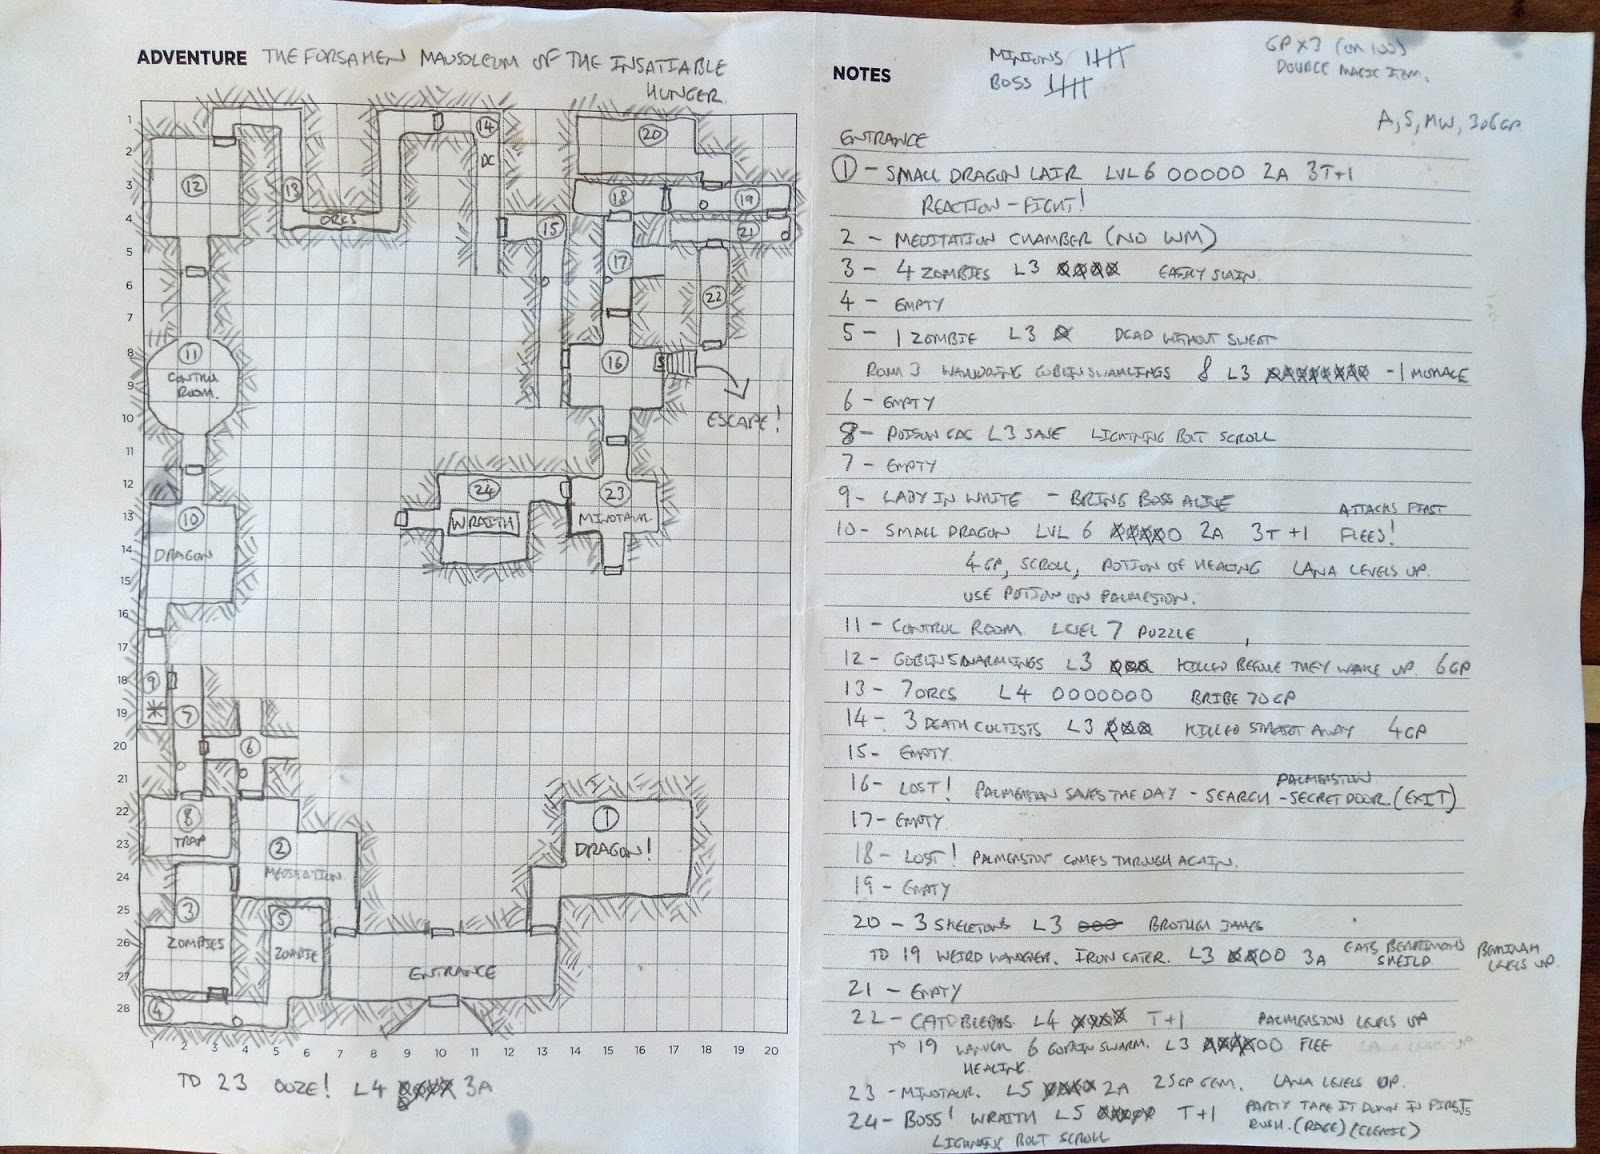 ADVENTURE THE FORSAKEN MAUSOLEUM OF THE INSATIABLE
HUNGER
1
2
3
4
5
6
7
8
9
10
11
12
13
14
15
16
17
18
19
20
21
22
23
24
25
26
27
28
1 2 3 4 5 6 7 8 9 10 11 12 13 14 15 16 17 18 19 20
12
13
ORCS
14
DC
20
18
19
21
15
17
22
11
CONTROL
ROOM.
16
S
ESCAPE!
10
DRAGON
24
WRAITH
23
MINOTAUR.
9
7
6
8
TRAP
2
MEDITATION
1
DRAGON!
3
ZOMBIES
5
ZOMBIE
ENTRANCE
4
TO 23 OOZE! L4 3A
NOTES
MINIONS
BOSS
GP x3 (OR 100)
DOUBLE MAGIC ITEM.
A, S, MW, 3D6GP
ENTRANCE
1 - SMALL DRAGON LAIR LVL 6 OOOOO 2A 3T+1
REACTION - FIGHT!
2 - MEDITATION CHAMBER (NO WM)
3 - 4 ZOMBIES L3 EASILY SLAIN.
4 - EMPTY
5 - 1 ZOMBIE L3 DEAD WITHOUT SWEAT
ROOM 3 WANDERING GOBLIN SWARMLINGS 8 L3 -1 MORALE
6 - EMPTY
8 - POISON GAS L3 SAVE LIGHTNING BOLT SCROLL
7 - EMPTY
9 - LADY IN WHITE - BRING BOSS ALIVE
ATTACKS FIRST
10 - SMALL DRAGON LVL 6 O 2A 3T+1 FLEES!
4GP, SCROLL, POTION OF HEALING LANA LEVELS UP.
USE POTION ON PALMERSTON.
11 - CONTROL ROOM LEVEL 7 PUZZLE
12 - GOBLIN SWARMLINGS L3 KILLED BEFORE THEY WAKE UP. 6GP
13 - 7 ORCS L4 OOOOOOO BRIBE 70GP
14 - 3 DEATH CULTISTS L3 KILLED STRAIGHT AWAY 4GP
15 - EMPTY
16 - LOST! PALMERSTON SAVES THE DAY - SEARCH - PALMERSTON SECRET DOOR. (EXIT)
17 - EMPTY
18 - LOST! PALMERSTON COMES THROUGH AGAIN.
19 - EMPTY
20 - 3 SKELETONS L3 BROTHER JAMES
TO 19 WEIRD WANDER. IRON EATER. L3 OO 3A EATS SHEILD LEVELS UP.
21 - EMPTY
22 - CATOBLEPAS L4 T+1 PALMERSTON LEVELS UP
TO 19 WANDER 6 GOBLIN SWARM. L3 OO FLEE
HEALING
23 - MINOTAUR. L5 2A 25GP GEM. LANA LEVELS UP.
24 - BOSS! WRAITH L5 T+1 PARTY TAKE IT DOWN IN FIRST
RUSH. (RAGE) (CLERIC)
LIGHTNING BOLT SCROLL